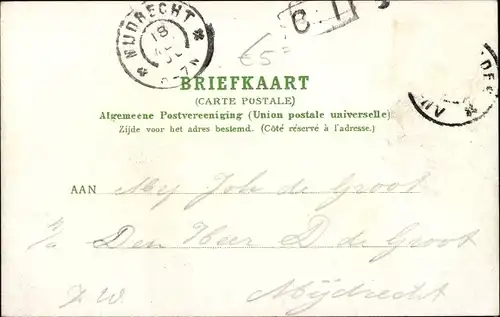 MIJDRECHT
18
€5=
C 1
BRIEFKAART
(CARTE POSTALE)
Algemeene Postvereeniging (Union postale universelle)
Zijde voor het adres bestemd. (Côté réservé à l'adresse.)
AAN Mej Joh de Groot
p/a Den Heer D de Groot
Mijdrecht